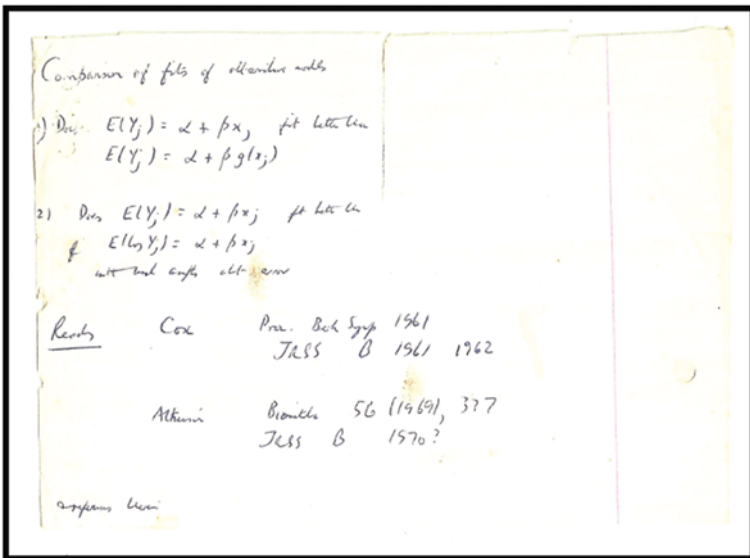 Comparison of fits of alternative models
1) Does E(Yj) = α + βxj fit better than
E(Yj) = α + β g(xj)
2) Does E(Yj) = α + βxj fit better than
E(log Yj) = α + βxj
error
Results Cox Proc. Berk Symp 1961
JRSS B 1961 1962
Atkinson Biometrika 56 (1969), 337
JRSS B 1970?
references therein